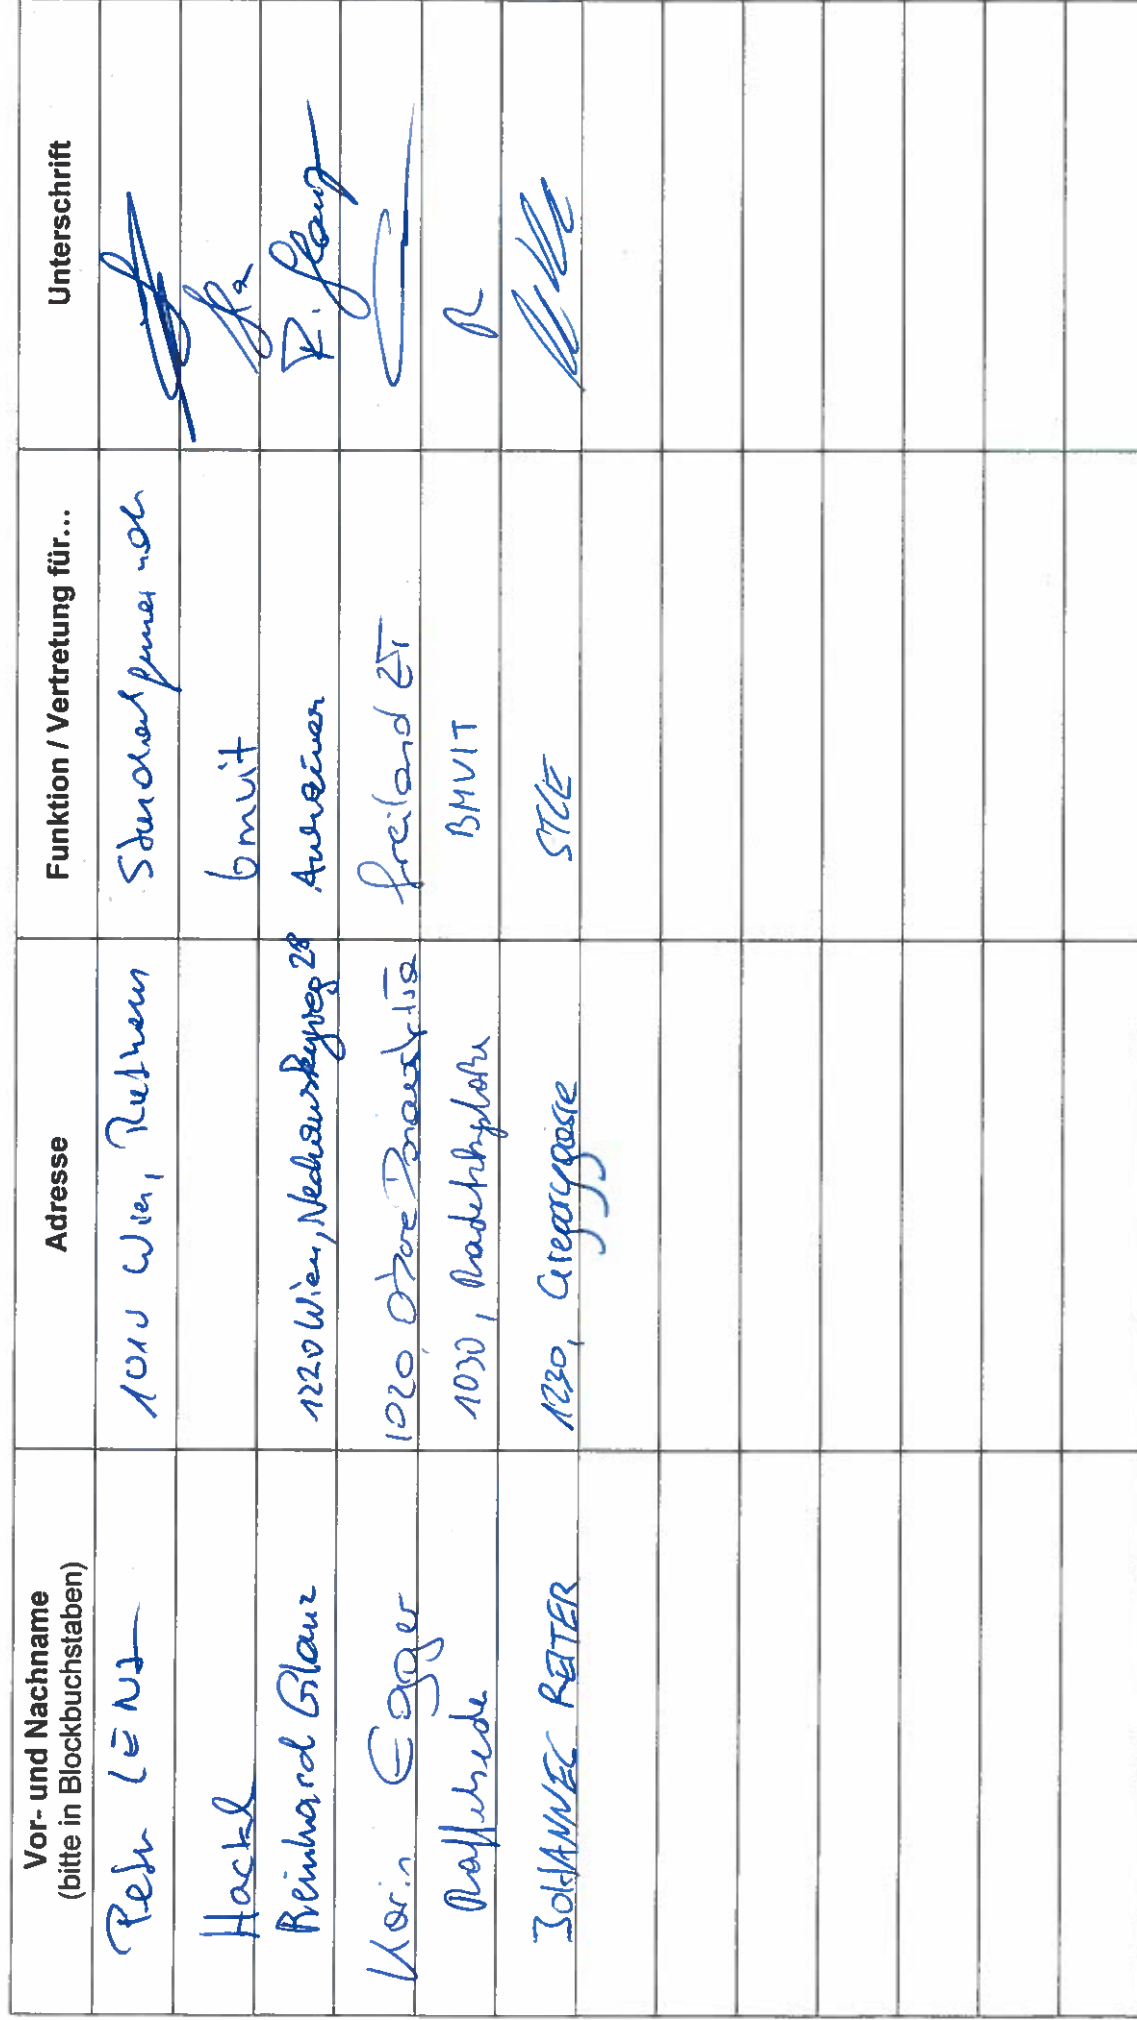 Vor- und Nachname
(bitte in Blockbuchstaben)
Adresse
Funktion / Vertretung für...
Unterschrift
Peter LENZ
1010 Wien, Rathaus
Hackl
bmvit
Reinhard Glanz
1220 Wien, Nechanskyweg 28
Anrainer
R. Glanz
Karin Egger
1020, Obere Donaustr.
freiland ZT
1030, Radetzkystraße
BMVIT
JOHANNES REITER
1230, Gregorygasse